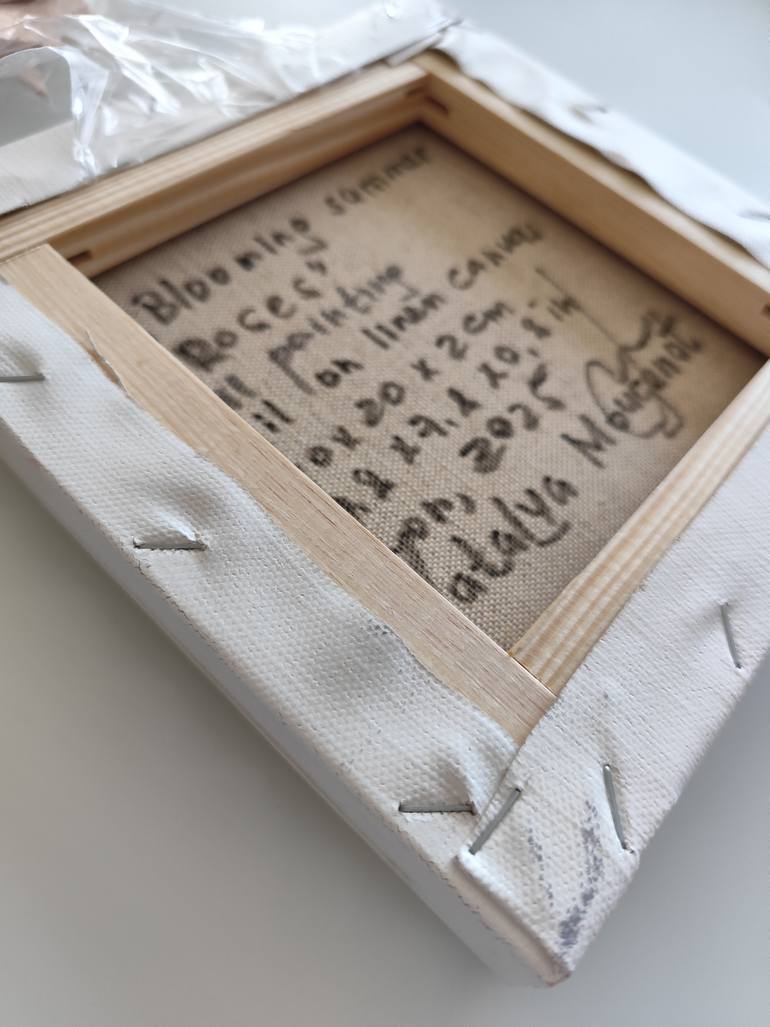 Blooming summer
Roses,
painting
on linen canvas
20 x 2 cm
x 7,8 x 0,8 in
2025
Natalya Mougenot